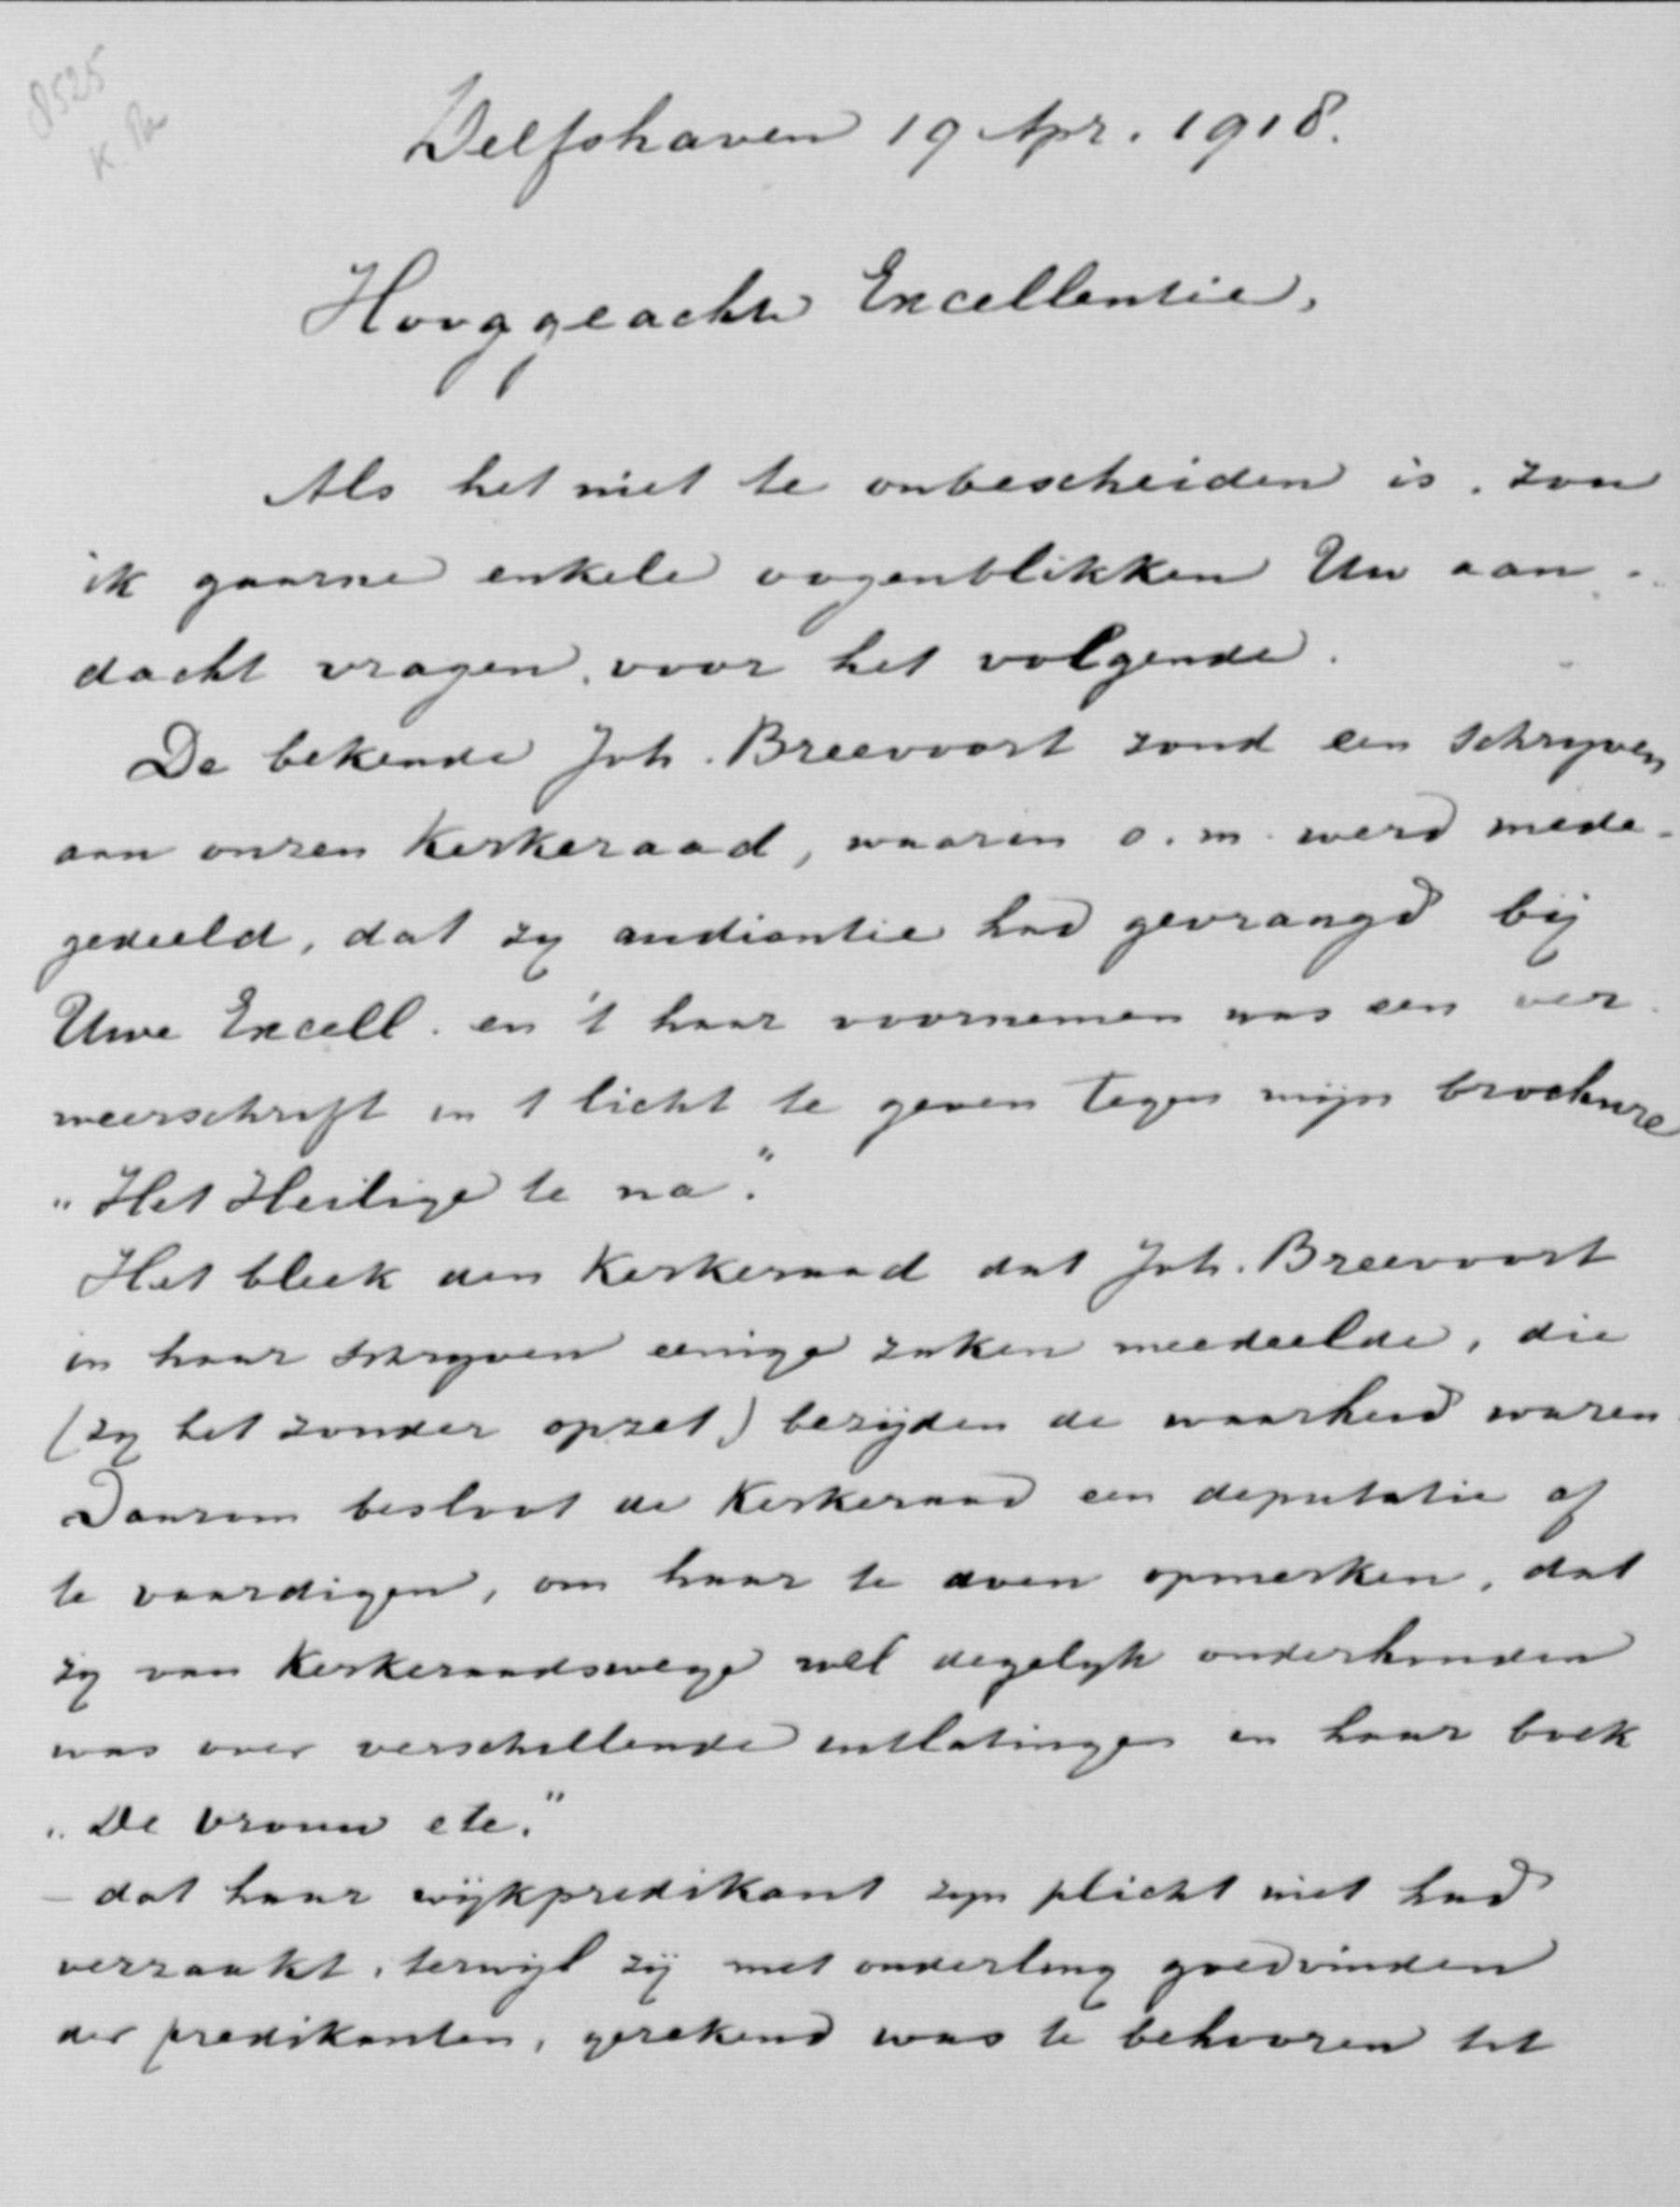 8525
K. Pa
Delfshaven 19 Apr. 1918.
Hooggeachte Excellentie,
Als het niet te onbescheiden is, zou
ik gaarne enkele oogenblikken Uw aan-
dacht vragen, voor het volgende.
De bekende Joh. Breevoort zond een schryven
aan onzen Kerkeraad, waarin o.m. werd mede-
gedeeld, dat zy audientie had gevraagd bij
Uwe Excell. en 't haar voornemen was een ver-
weerschrift in 't licht te geven tegen mijn brochure
„Het Heilige te na."
Het bleek den Kerkeraad dat Joh. Breevoort
in haar schryven eenige zaken meedeelde, die
(zy het zonder opzet) bezijden de waarheid waren
Daarom besloot de Kerkeraad een deputatie af
te vaardigen, om haar te doen opmerken, dat
zy van Kerkeraadswege wel degelyk onderhouden
was over verschillende uitlatingen in haar boek
„De vrouw etc."
- dat haar wijkpredikant zyn plicht niet had
verzaakt, terwijl zij met onderling goedvinden
der predikanten, gerekend was te behooren tot